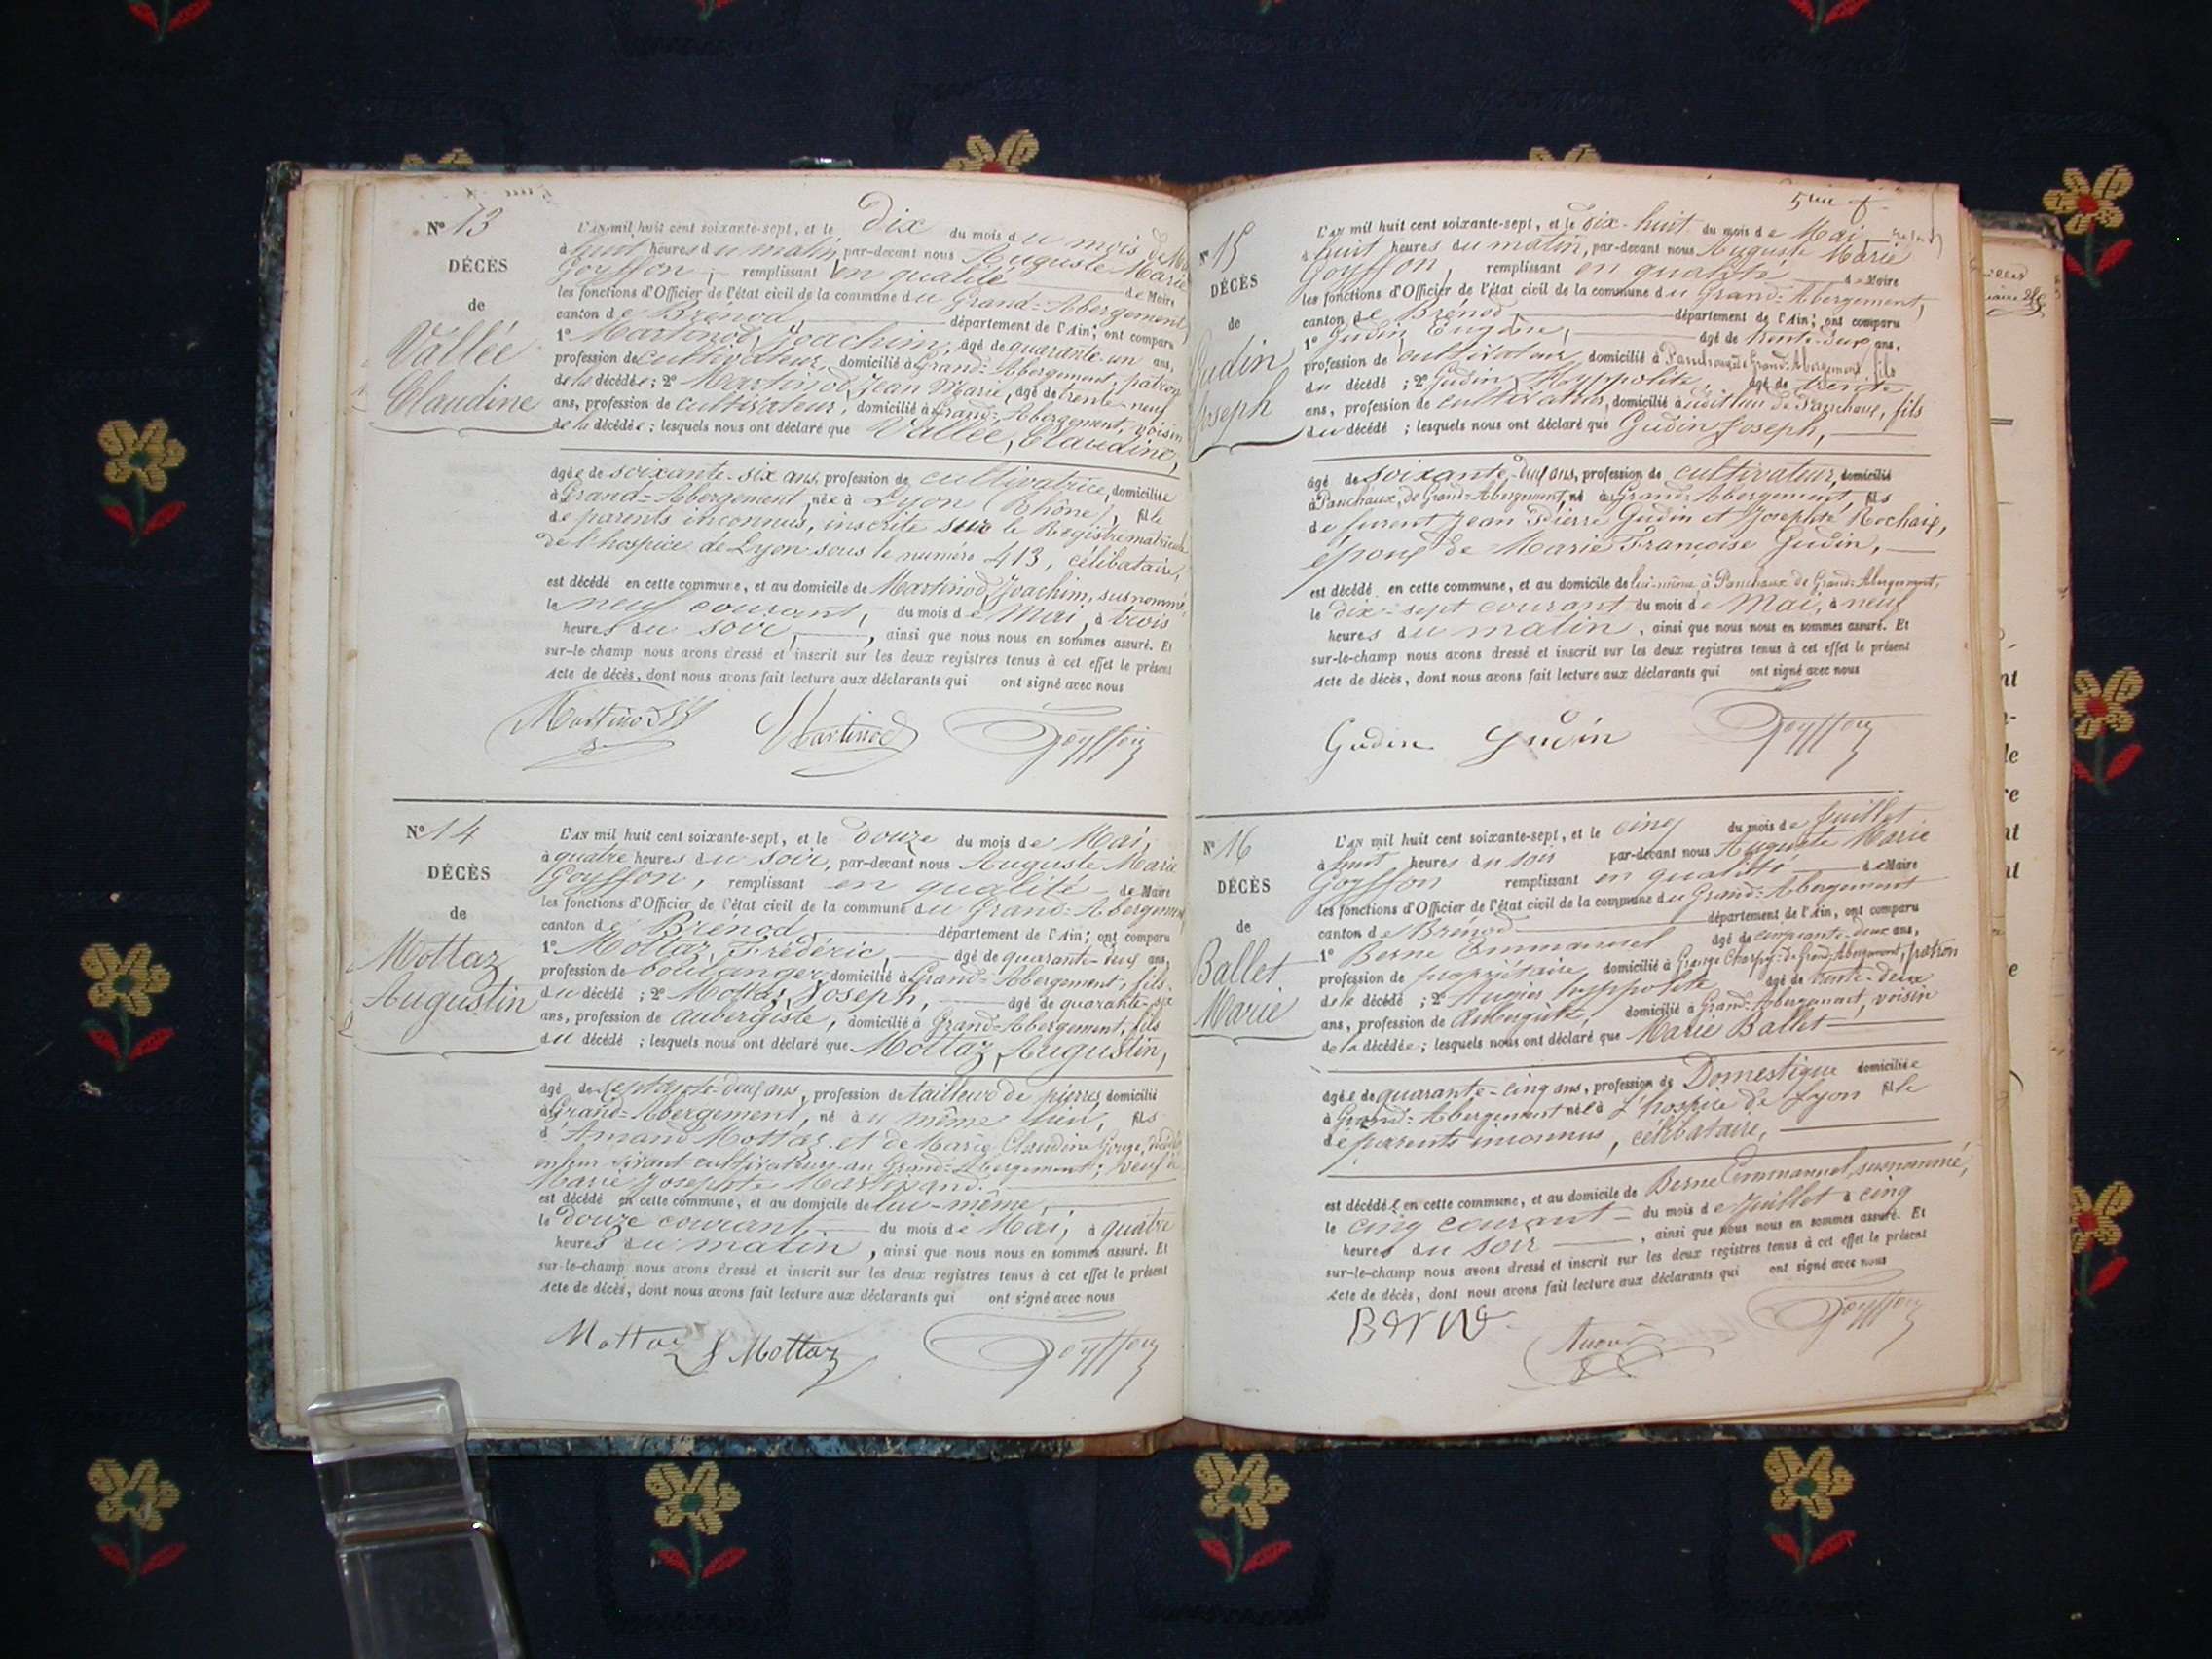 N° 13
DÉCÈS
de
Vallée
Claudine
L'AN mil huit cent soixante-sept, et le dix du mois du mois de Mai
à huit heures du matin, par-devant nous Auguste Marie
Goyffon, remplissant en qualité de Maire
les fonctions d'Officier de l'état civil de la commune du Grand-Abergement,
canton de Brénod, département de l'Ain; ont comparu
1° Martinod, Joachim, âgé de quarante-un ans,
profession de cultivateur, domicilié à Grand-Abergement, patron
de la décédée; 2° Martinod, Jean Marie, âgé de trente-neuf
ans, profession de cultivateur, domicilié à Grand-Abergement, voisin
de la décédée; lesquels nous ont déclaré que Vallée, Claudine,
âgée de soixante-six ans, profession de cultivatrice, domiciliée
à Grand-Abergement, née à Lyon (Rhône), fille
de parents inconnus, inscrite sur le Registre matricule
de l'hospice de Lyon sous le numéro 413, célibataire,
est décédé en cette commune, et au domicile de Martinod, Joachim, susnommé,
le neuf courant, du mois de Mai, à trois
heures du soir, ainsi que nous nous en sommes assuré. Et
sur-le-champ nous avons dressé et inscrit sur les deux registres tenus à cet effet le présent
Acte de décès, dont nous avons fait lecture aux déclarants qui ont signé avec nous
Martinod Martinod Goyffon
N° 14
DÉCÈS
de
Mottaz
Augustin
L'AN mil huit cent soixante-sept, et le douze du mois de Mai,
à quatre heures du soir, par-devant nous Auguste Marie
Goyffon, remplissant en qualité de Maire
les fonctions d'Officier de l'état civil de la commune du Grand-Abergement
canton de Brénod, département de l'Ain; ont comparu
1° Mottaz, Frédéric, âgé de quarante-neuf ans,
profession de boulanger, domicilié à Grand-Abergement, fils
du décédé; 2° Mottaz, Joseph, âgé de quarante-six
ans, profession de aubergiste, domicilié à Grand-Abergement, fils
du décédé; lesquels nous ont déclaré que Mottaz, Augustin,
âgé de septante-deux ans, profession de tailleur de pierres, domicilié
à Grand-Abergement, né à u même lieu, fils
d'Amand Mottaz et de Marie Claudine Gouge, décédés
en leur vivant cultivateurs au Grand-Abergement; veuf de
Marie Josephte
est décédé en cette commune, et au domicile de lui-même,
le douze courant du mois de Mai, à quatre
heures du matin, ainsi que nous nous en sommes assuré. Et
sur-le-champ nous avons dressé et inscrit sur les deux registres tenus à cet effet le présent
Acte de décès, dont nous avons fait lecture aux déclarants qui ont signé avec nous
Mottaz J Mottaz Goyffon
5me f
N° 15
DÉCÈS
de
Gudin
Joseph
L'AN mil huit cent soixante-sept, et le dix-huit du mois de Mai,
à huit heures du matin, par-devant nous Auguste Marie
Goyffon, remplissant en qualité de Maire
les fonctions d'Officier de l'état civil de la commune du Grand-Abergement,
canton de Brénod, département de l'Ain; ont comparu
1° Gudin, Eugène, âgé de trente-deux ans,
profession de cultivateur, domicilié à Panchaux de Grand-Abergement, fils
du décédé; 2° Gudin, Hyppolite, âgé de trente
ans, profession de cultivateur, domicilié audit lieu de Panchaux, fils
du décédé; lesquels nous ont déclaré que Gudin Joseph,
âgé de soixante-deux ans, profession de cultivateur, domicilié
à Panchaux, de Grand-Abergement, né à Grand-Abergement, fils
de furent Jean Pierre Gudin et Josephte Rochaix,
époux de Marie Françoise Gudin,
est décédé en cette commune, et au domicile de lui-même à Panchaux de Grand-Abergement,
le dix-sept courant du mois de Mai, à neuf
heures du matin, ainsi que nous nous en sommes assuré. Et
sur-le-champ nous avons dressé et inscrit sur les deux registres tenus à cet effet le présent
Acte de décès, dont nous avons fait lecture aux déclarants qui ont signé avec nous
Gudin Gudin Goyffon
N° 16
DÉCÈS
de
Ballet
Marie
L'AN mil huit cent soixante-sept, et le cinq du mois de Juillet
à huit heures du soir par-devant nous Auguste Marie
Goyffon remplissant en qualité de Maire
les fonctions d'Officier de l'état civil de la commune du Grand-Abergement
canton de Brénod département de l'Ain, ont comparu
1° Berne Emmanuel âgé de cinquante-deux ans,
profession de propriétaire, domicilié à Grange Charpy-de Grand-Abergement, patron
de la décédé; 2° Augier hyppolite âgé de trente-deux
ans, profession de Aubergiste, domicilié à Grand-Abergement, voisin
de la décédée; lesquels nous ont déclaré que Marie Ballet
âgée de quarante-cinq ans, profession de Domestique domiciliée
à Grand-Abergement née à L'hospice de Lyon fille
de parents inconnus, célibataire,
est décédée en cette commune, et au domicile de Berne Emmanuel, susnommé,
le cinq courant du mois de Juillet à cinq
heures du soir, ainsi que nous nous en sommes assuré. Et
sur-le-champ nous avons dressé et inscrit sur les deux registres tenus à cet effet le présent
Acte de décès, dont nous avons fait lecture aux déclarants qui ont signé avec nous
Berne Goyffon